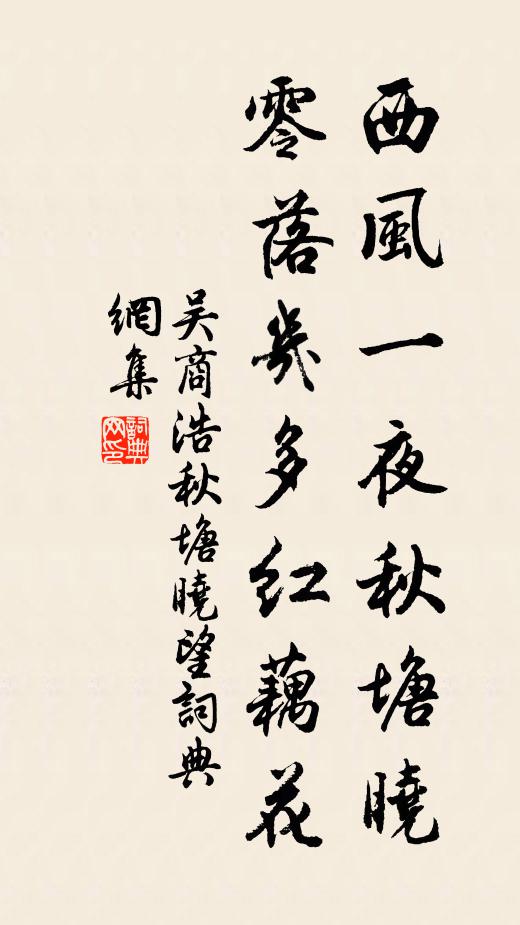 西風一夜秋塘曉
零落幾多紅藕花
吳商浩秋塘曉望詞典
網集
詞典
网印